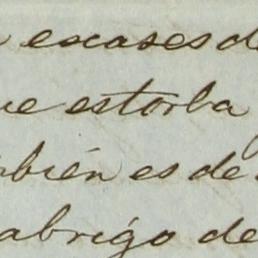 escases de
que estorba
mbién es de
abrigo de